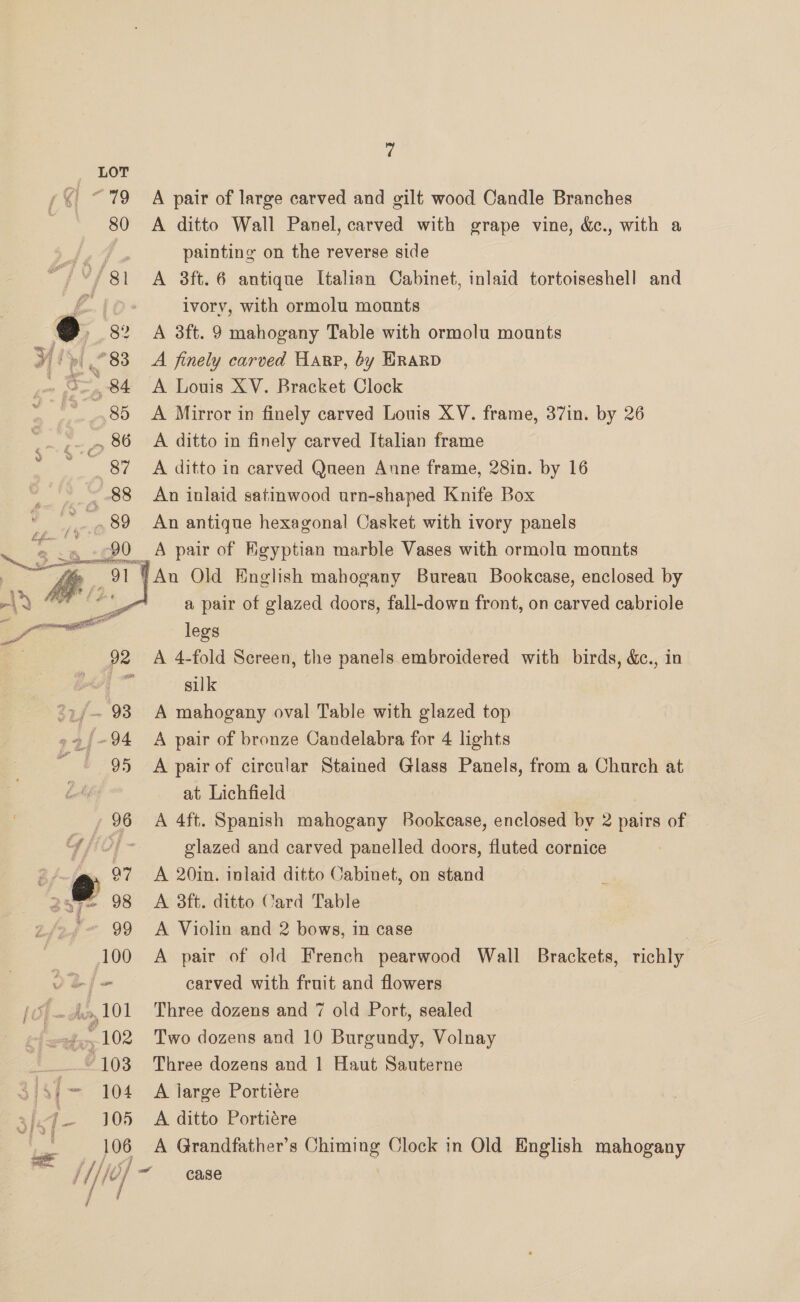 7
LOT
79 A pair of large carved and gilt wood Candle Branches
80 A ditto Wall Panel, carved with grape vine, &c., with a
painting on the reverse side
81 A 3ft. 6 antique Italian Cabinet, inlaid tortoiseshell and
ivory, with ormolu mounts
82 A 3ft. 9 mahogany Table with ormolu mounts
83 A finely carved HARP, by ERARD
84 A Louis XV. Bracket Clock
85 A Mirror in finely carved Louis XV. frame, 37in. by 26
86 A ditto in finely carved Italian frame
87 A ditto in carved Queen Anne frame, 28in. by 16
88 An inlaid satinwood urn-shaped Knife Box
89 An antique hexagonal Casket with ivory panels
90 A pair of Egyptian marble Vases with ormolu mounts
91 An Old English mahogany Bureau Bookcase, enclosed by
a pair of glazed doors, fall-down front, on carved cabriole
legs
92 A 4-fold Screen, the panels embroidered with birds, &c., in
silk
93 A mahogany oval Table with glazed top
94 A pair of bronze Candelabra for 4 lights
95 A pair of circular Stained Glass Panels, from a Church at
at Lichfield
96 A 4ft. Spanish mahogany Bookcase, enclosed by 2 pairs of
glazed and carved panelled doors, fluted cornice
97 A 20in. inlaid ditto Cabinet, on stand
98 A 3ft. ditto Card Table
99 A Violin and 2 bows, in case
100 A pair of old French pearwood Wall Brackets, richly
carved with fruit and flowers
101 Three dozens and 7 old Port, sealed
102 Two dozens and 10 Burgundy, Volnay
103 Three dozens and 1 Haut Sauterne
104 A large Portière
105 A ditto Portière
106 A Grandfather's Chiming Clock in Old English mahogany
case